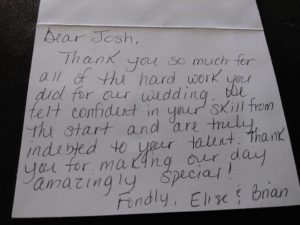 Dear Josh,
Thank you so much for
all of the hard work you
did for our wedding. We
felt confident in your skill from
the start and are truly
indebted to your talent. Thank
you for making our day
amazingly special!
Fondly, Elise & Brian